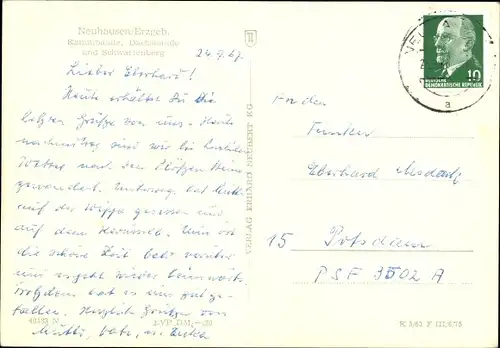 Neuhausen/Erzgeb.
Kammbaude, Dachsbaude
und Schwartenberg
24.9.67.
Lieber Eberhard!
Heute erhältst Du die
letzten Grüße von uns. Heute
nachmittag sind wir bei
nach dem
gewandert. Unterwegs hat
auf der Wippe gesessen und
auf dem Karussell. Nun ist
die schöne Zeit bald vorüber
und es geht wieder heimwärts.
Trotzdem hat es uns gut ge-
fallen. Herzlich Grüße von
Mutti, Vati, u.
40123 N EVP DM -,20
VERLAG ERHARD NEUBERT KG
NEUHA
a
10
DEUTSCHE
DEMOKRATISCHE REPUBLIK
An den
Funker
Eberhard
15 Potsdam
PSF 3502 A
K 3/63 F III/6/75